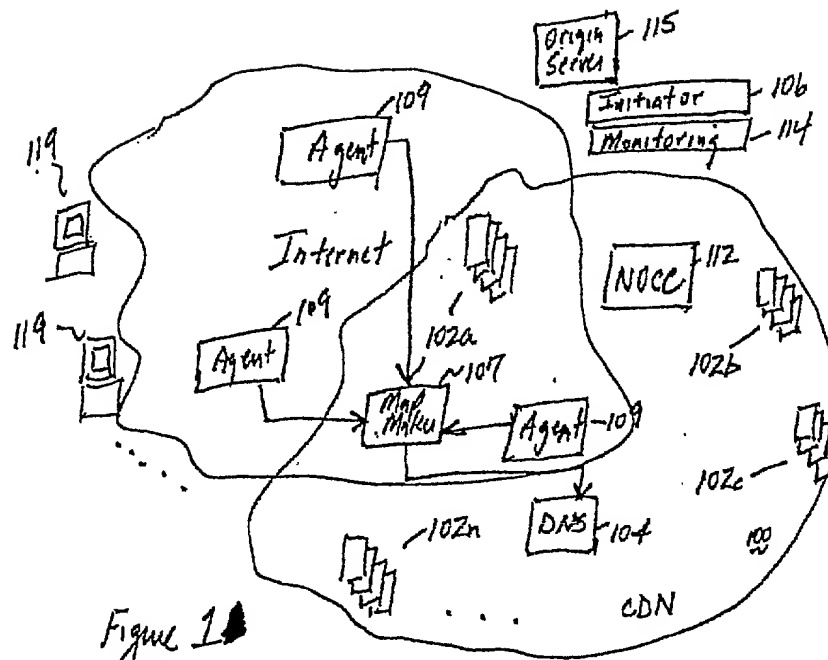 Origin
Server
115
Initiator
106
Monitoring
114
109
Agent
119
Internet
NOCC
112
119
109
Agent
102a
107
Map
Maker
102b
Agent
109
102c
DNS
104
102n
100
. . .
CDN
Figure 1